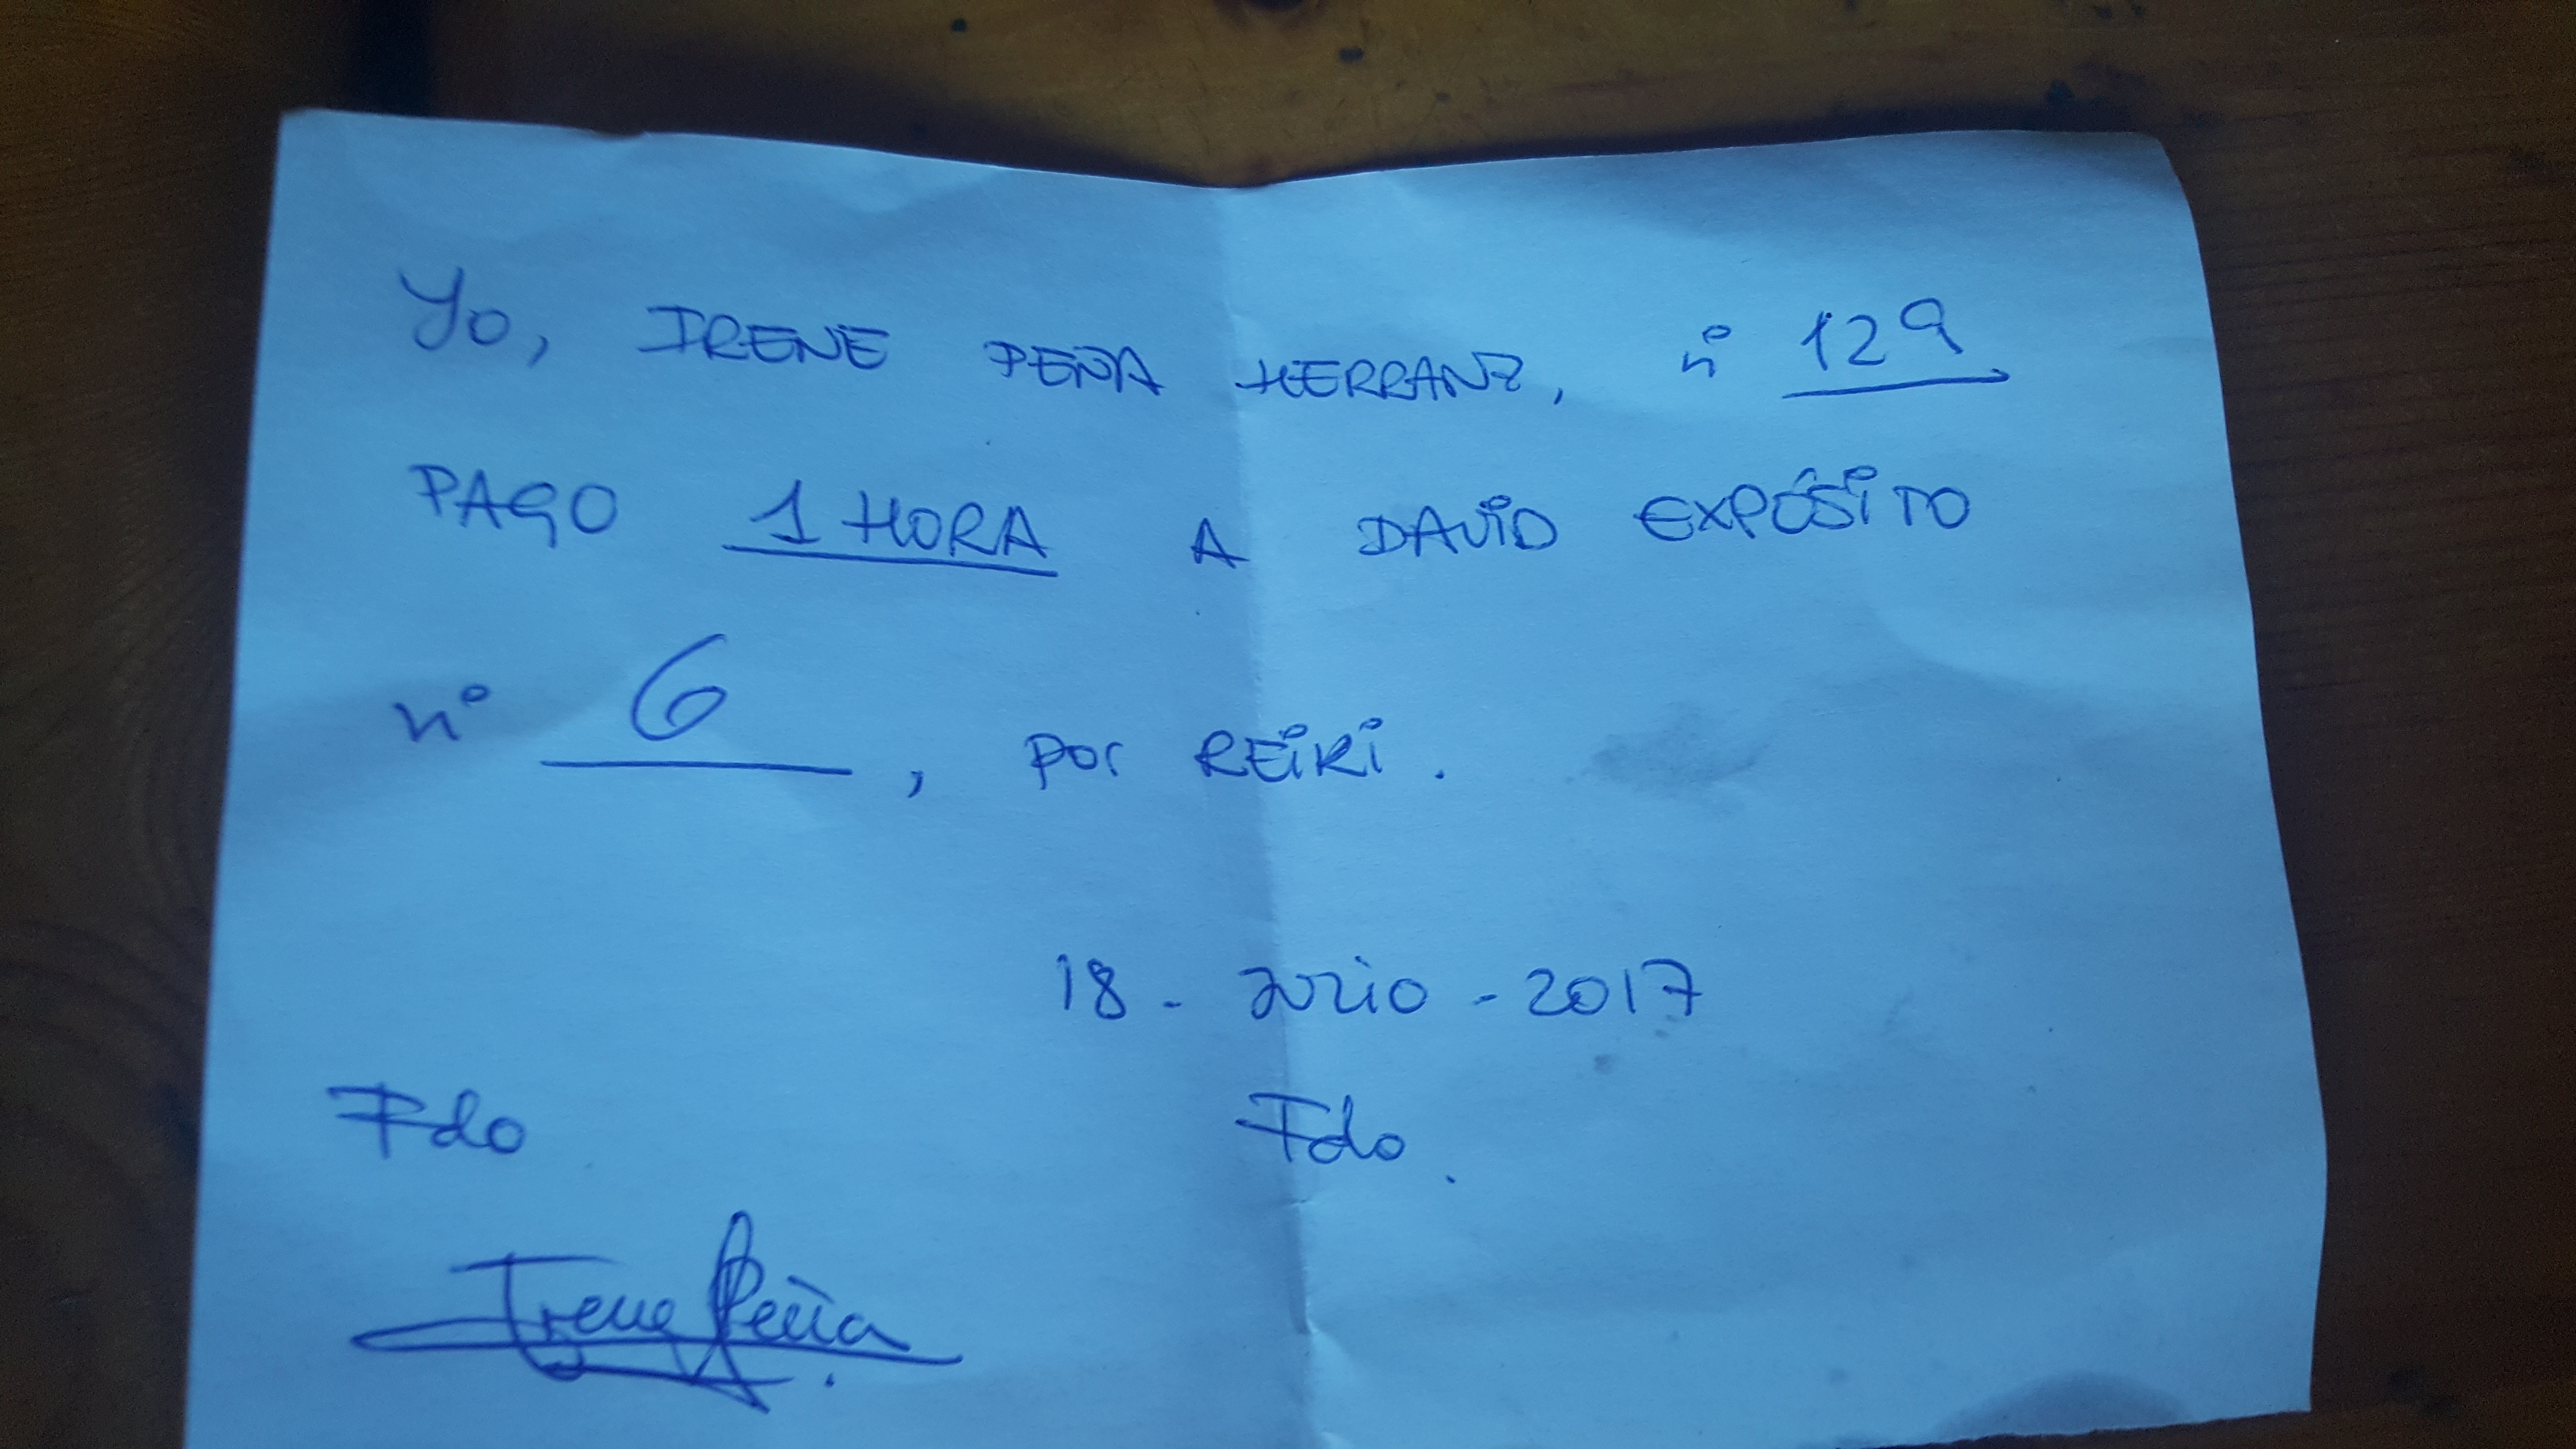 Yo, IRENE PEÑA HERRANZ, nº 129
PAGO 1 HORA A DAVID EXPÓSITO
nº 6, por REIKI.
18 - JULIO - 2017
Fdo Fdo.
Irene Peña